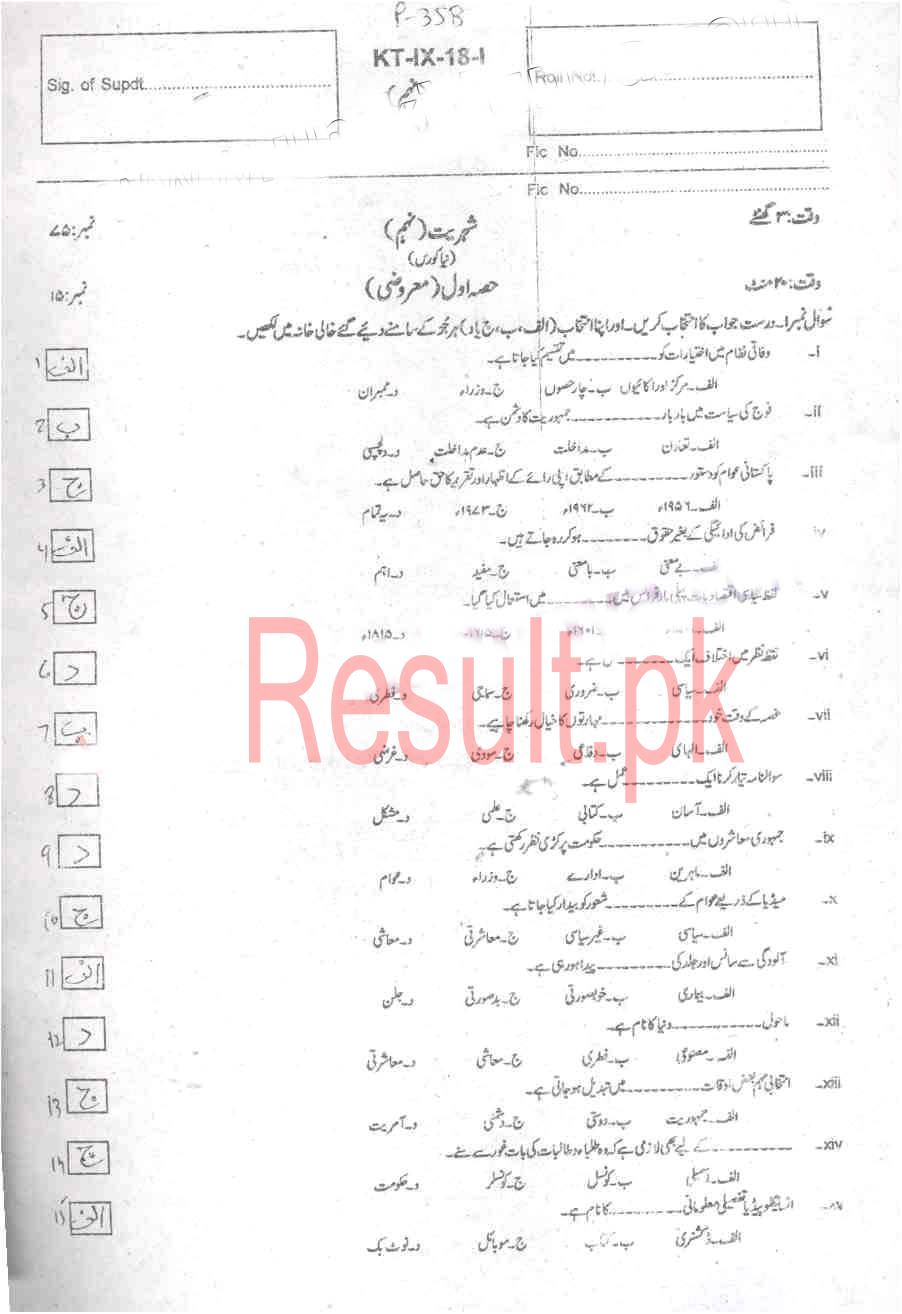 P-358
KT-IX-18-I
Sig. of Supdt
(نہم)
Roll No.
Fic No.
Fic No.
وقت: ۳ گھنٹے
شہریت (نہم)
نمبر: ۷۵
(نیا کورس)
وقت: ۲۰ منٹ
حصہ اول (معروضی)
نمبر: ۱۵
سوال نمبر ۱۔ درست جواب کا انتخاب کریں۔ اور اپنا انتخاب (الف، ب، ج یا د) ہر جز کے سامنے دیئے گئے خالی خانہ میں لکھیں۔
i۔ وفاقی نظام میں اختیارات کو ۔۔۔۔۔۔۔۔ میں تقسیم کیا جاتا ہے۔
1 الف
الف۔ مرکز اور اکائیوں ب۔ چار حصوں ج۔ وزراء د۔ ممبران
ii۔ فوج کی سیاست میں بار بار ۔۔۔۔۔۔۔۔ جمہوریت کا دشمن ہے۔
2 ب
الف۔ تعاون ب۔ مداخلت ج۔ عدم مداخلت د۔ دلچسپی
iii۔ پاکستانی عوام کو دستور ۔۔۔۔۔۔۔۔ کے مطابق اپنی رائے کے اظہار اور تقریر کا حق حاصل ہے۔
3 ج
الف۔ ۱۹۵۶ء ب۔ ۱۹۶۲ء ج۔ ۱۹۷۳ء د۔ یہ تمام
iv فرائض کی ادائیگی کے بغیر حقوق ۔۔۔۔۔۔۔۔ ہو کر رہ جاتے ہیں۔
4 الف
بے معنی ب۔ بامعنی ج۔ مفید د۔ اہم
v۔ لفظ سیاسی اقتصادیات پہلی بار فرانس میں ۔۔۔۔۔۔۔۔ میں استعمال کیا گیا۔
5 ج
الف۔ ج۔ ۱۶۱۵ء د۔ ۱۸۱۵ء
vi۔ نقطہ نظر میں اختلاف ایک ۔۔۔۔۔۔۔۔ ہے۔
6 د
الف۔ سیاسی ب۔ ضروری ج۔ سماجی د۔ فطری
vii۔ غصہ کے وقت خود ۔۔۔۔۔۔۔۔ مہارتوں کا خیال رکھنا چاہیے۔
7 ب
الف۔ الہامی ب۔ دفاعی ج۔ د۔ غرضی
viii۔ سوالنامہ تیار کرنا ایک ۔۔۔۔۔۔۔۔ عمل ہے۔
8 د
الف۔ آسان ب۔ کتابی ج۔ علمی د۔ مشکل
ix۔ جمہوری معاشروں میں ۔۔۔۔۔۔۔۔ حکومت پر کڑی نظر رکھتی ہے۔
9 د
الف۔ ماہرین ب۔ ادارے ج۔ وزراء د۔ عوام
x۔ میڈیا کے ذریعے عوام کے ۔۔۔۔۔۔۔۔ شعور کو بیدار کیا جاتا ہے۔
10 ج
الف۔ سیاسی ب۔ غیر سیاسی ج۔ معاشرتی د۔ معاشی
xi۔ آلودگی سے سانس اور جلد کی ۔۔۔۔۔۔۔۔ پیدا ہو رہی ہے۔
11 الف
الف۔ بیماری ب۔ خوبصورتی ج۔ بدصورتی د۔ جلن
xii۔ ماحول ۔۔۔۔۔۔۔۔ دنیا کا نام ہے۔
12 د
الف۔ مصنوعی ب۔ فطری ج۔ معاشی د۔ معاشرتی
xiii۔ انتخابی مہم بعض اوقات ۔۔۔۔۔۔۔۔ میں تبدیل ہو جاتی ہے۔
13 ج
الف۔ جمہوریت ب۔ دوستی ج۔ دشمنی د۔ آمریت
xiv۔ ۔۔۔۔۔۔۔۔ کے لیے بھی لازمی ہے کہ وہ طلباء و طالبات کی بات غور سے سنے۔
14 ج
الف۔ اسمبلی ب۔ کونسل ج۔ کونسلر د۔ حکومت
xv۔ انسائیکلوپیڈیا تفصیلی معلوماتی ۔۔۔۔۔۔۔۔ کا نام ہے۔
15 الف
الف۔ ڈکشنری ب۔ کتاب ج۔ موبائل د۔ نوٹ بک
Result.pk